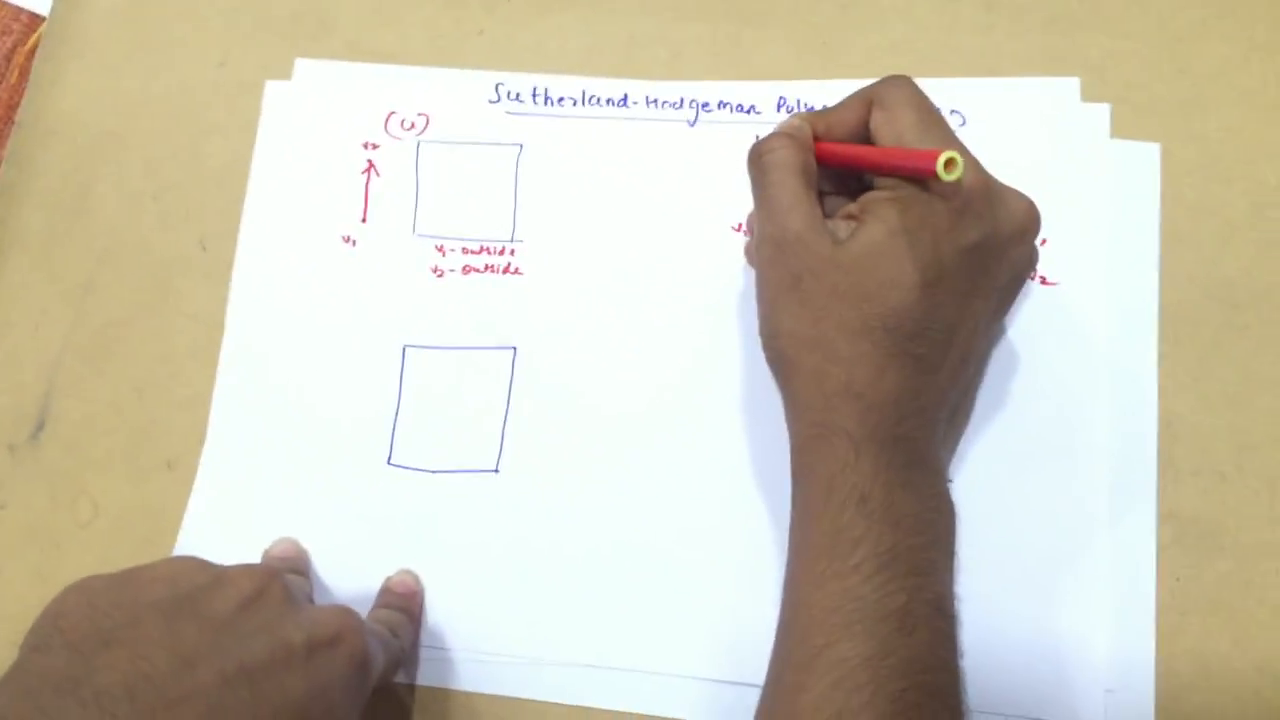 Sutherland-Hodgeman
(a)
v2
v1
v1 - outside
v2 - outside
v2